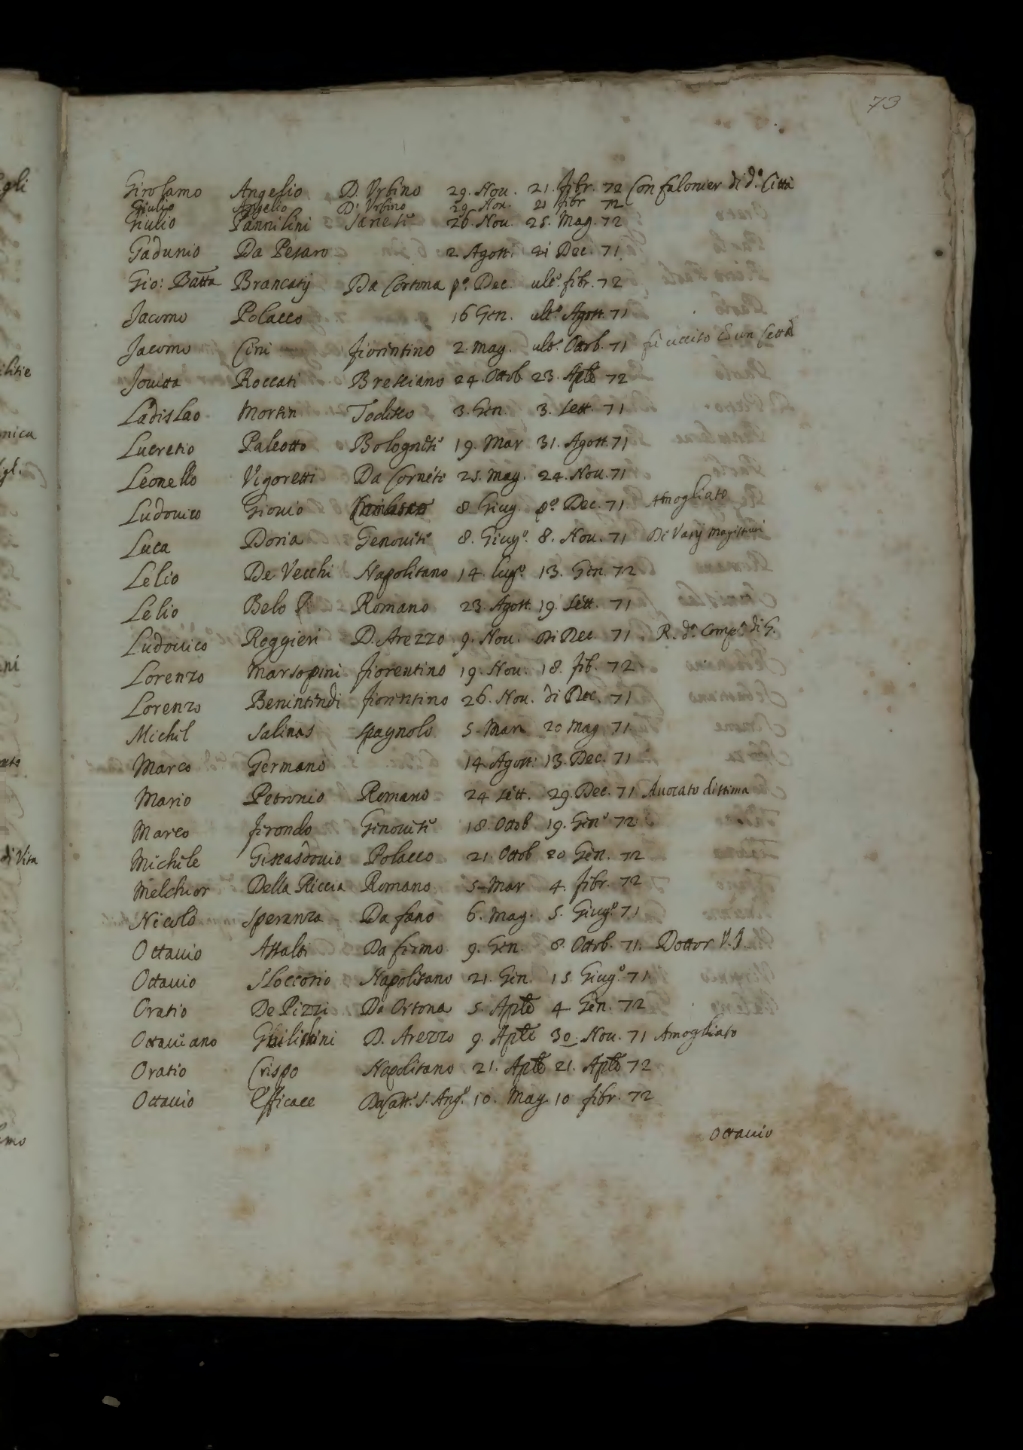 73
Girolamo Angelio D. Vrbino 29. Nou. 21. fibr. 72 Confalonier di d.ª Città
Giulio Angelio D. Vrbino 29. Nou. 21 fibr 72
Giulio Pannilini Sanese 26. Nou. 25. Mag. 72
Gadunio Da Pesaro 2. Agost. di Dec. 71
Gio: Batta Brancatij Da Cortona p.º Dec. ult.º fibr. 72
Jacomo Polacco 16 Gen. ult.º Agost. 71
Jacomo Cini fiorentino 2 Mag. ult.º Ottob. 71 fù ucciso
Jouitta Roccati Bresciano 24. Ottob 23. Aple 72
Ladislao Mortin Todisco 3. Gen 3. Sett. 71
Lucretio Paleotto Bolognese 19. Mar 31. Agost. 71
Leonello Vigoretti Da Corneto 25. Mag. 24. Nou. 71
Ludouico Giouio 8 Giug p.º Dec. 71 Amogliato
Luca Doria Genouese 8. Giug.º 8. Nou. 71 Di Varij Magisteri
Lelio De Vecchi Napolitano 14. lugº 13. Gen 72
Lelio Belo Romano 23. Agost. 19. Sett. 71
Ludouico Roggieri D. Arezzo 9. Nou. di Dec 71. R. d.ª Comp.ª di G.
Lorenzo Marsopini fiorentino 19. Nou. 18. fib. 72
Lorenzo Benintendi fiorentino 26. Nou. di Dec. 71
Michel Salinas Spagnolo 5. Mar. 20 Mag 71
Marco Germano 14. Agost. 13. Dec. 71
Mario Petronio Romano 24 Sett. 29. Dec. 71 Auocato dissima
Marco firondo Genouese 18. Ottob. 19. Gen.º 72
Michele Polacco 21. Ottob 20 Gen. 72
Melchior Della Riccia Romano 5. Mar 4. fibr. 72
Nicolo Speranza Da fano 6. Mag. 5. Giug.º 71
Octauio Assalti Da fermo 9. Gen 8 Ottob. 71. Dottor V. J.
Octauio Napolitano 21. Gen. 15. Giug.º 71
Oratio De Pizzi Da Ortona 5 Aple 4 Gen. 72
Octauiano Ghilishini D. Arezzo 9. Aple 30. Nou. 71 Amogliato
Oratio Crispo Napolitano 21. Aple 21. Aple 72
Octauio Efficace Da Catt.º S. Ang.º 10. May 10 fibr. 72
Octauio